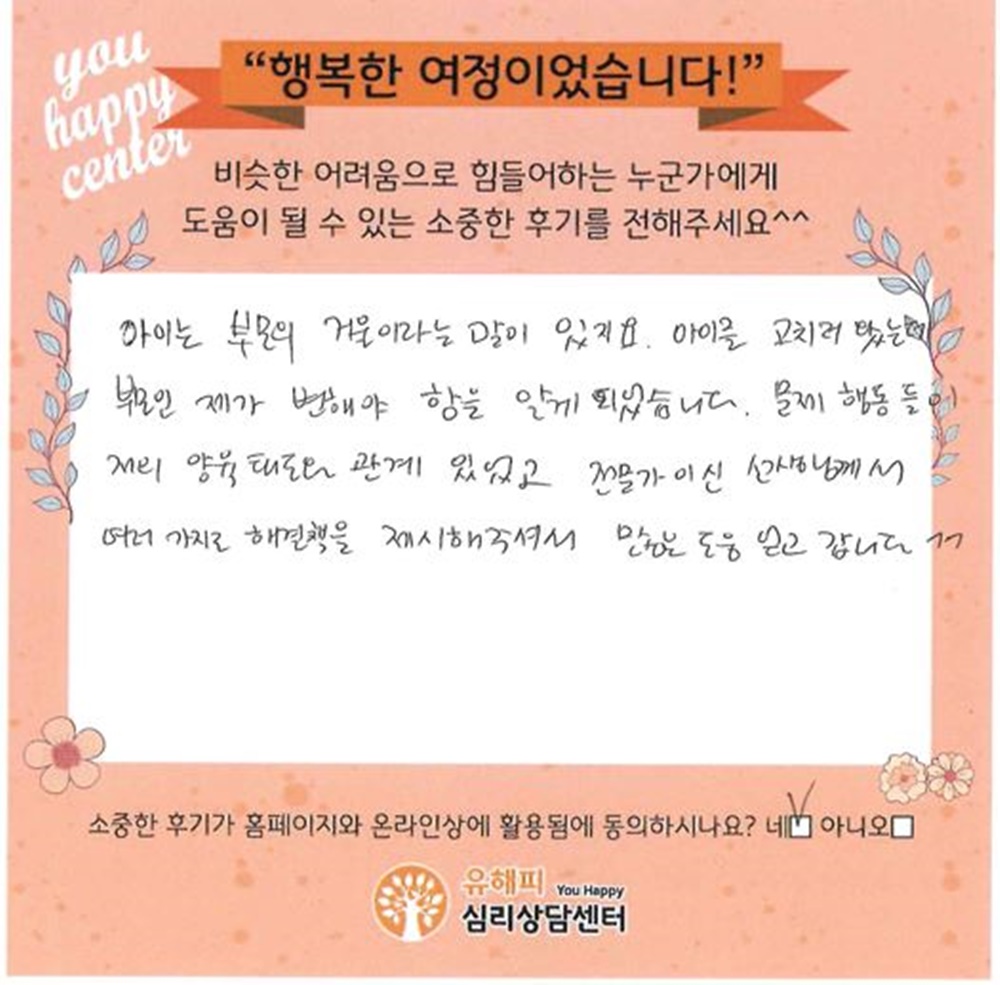 you
happy
center
“행복한 여정이었습니다!”
비슷한 어려움으로 힘들어하는 누군가에게
도움이 될 수 있는 소중한 후기를 전해주세요^^
아이는 부모의 거울이라는 말이 있지요. 아이를 고치러 왔는데
부모인 제가 변해야 함을 알게 되었습니다. 문제 행동들이
저의 양육태도와 관계 있었고 전문가이신 선생님께서
여러 가지로 해결책을 제시해주셔서 많은 도움 얻고 갑니다 ^^
소중한 후기가 홈페이지와 온라인상에 활용됨에 동의하시나요? 네 아니오
유해피 You Happy
심리상담센터